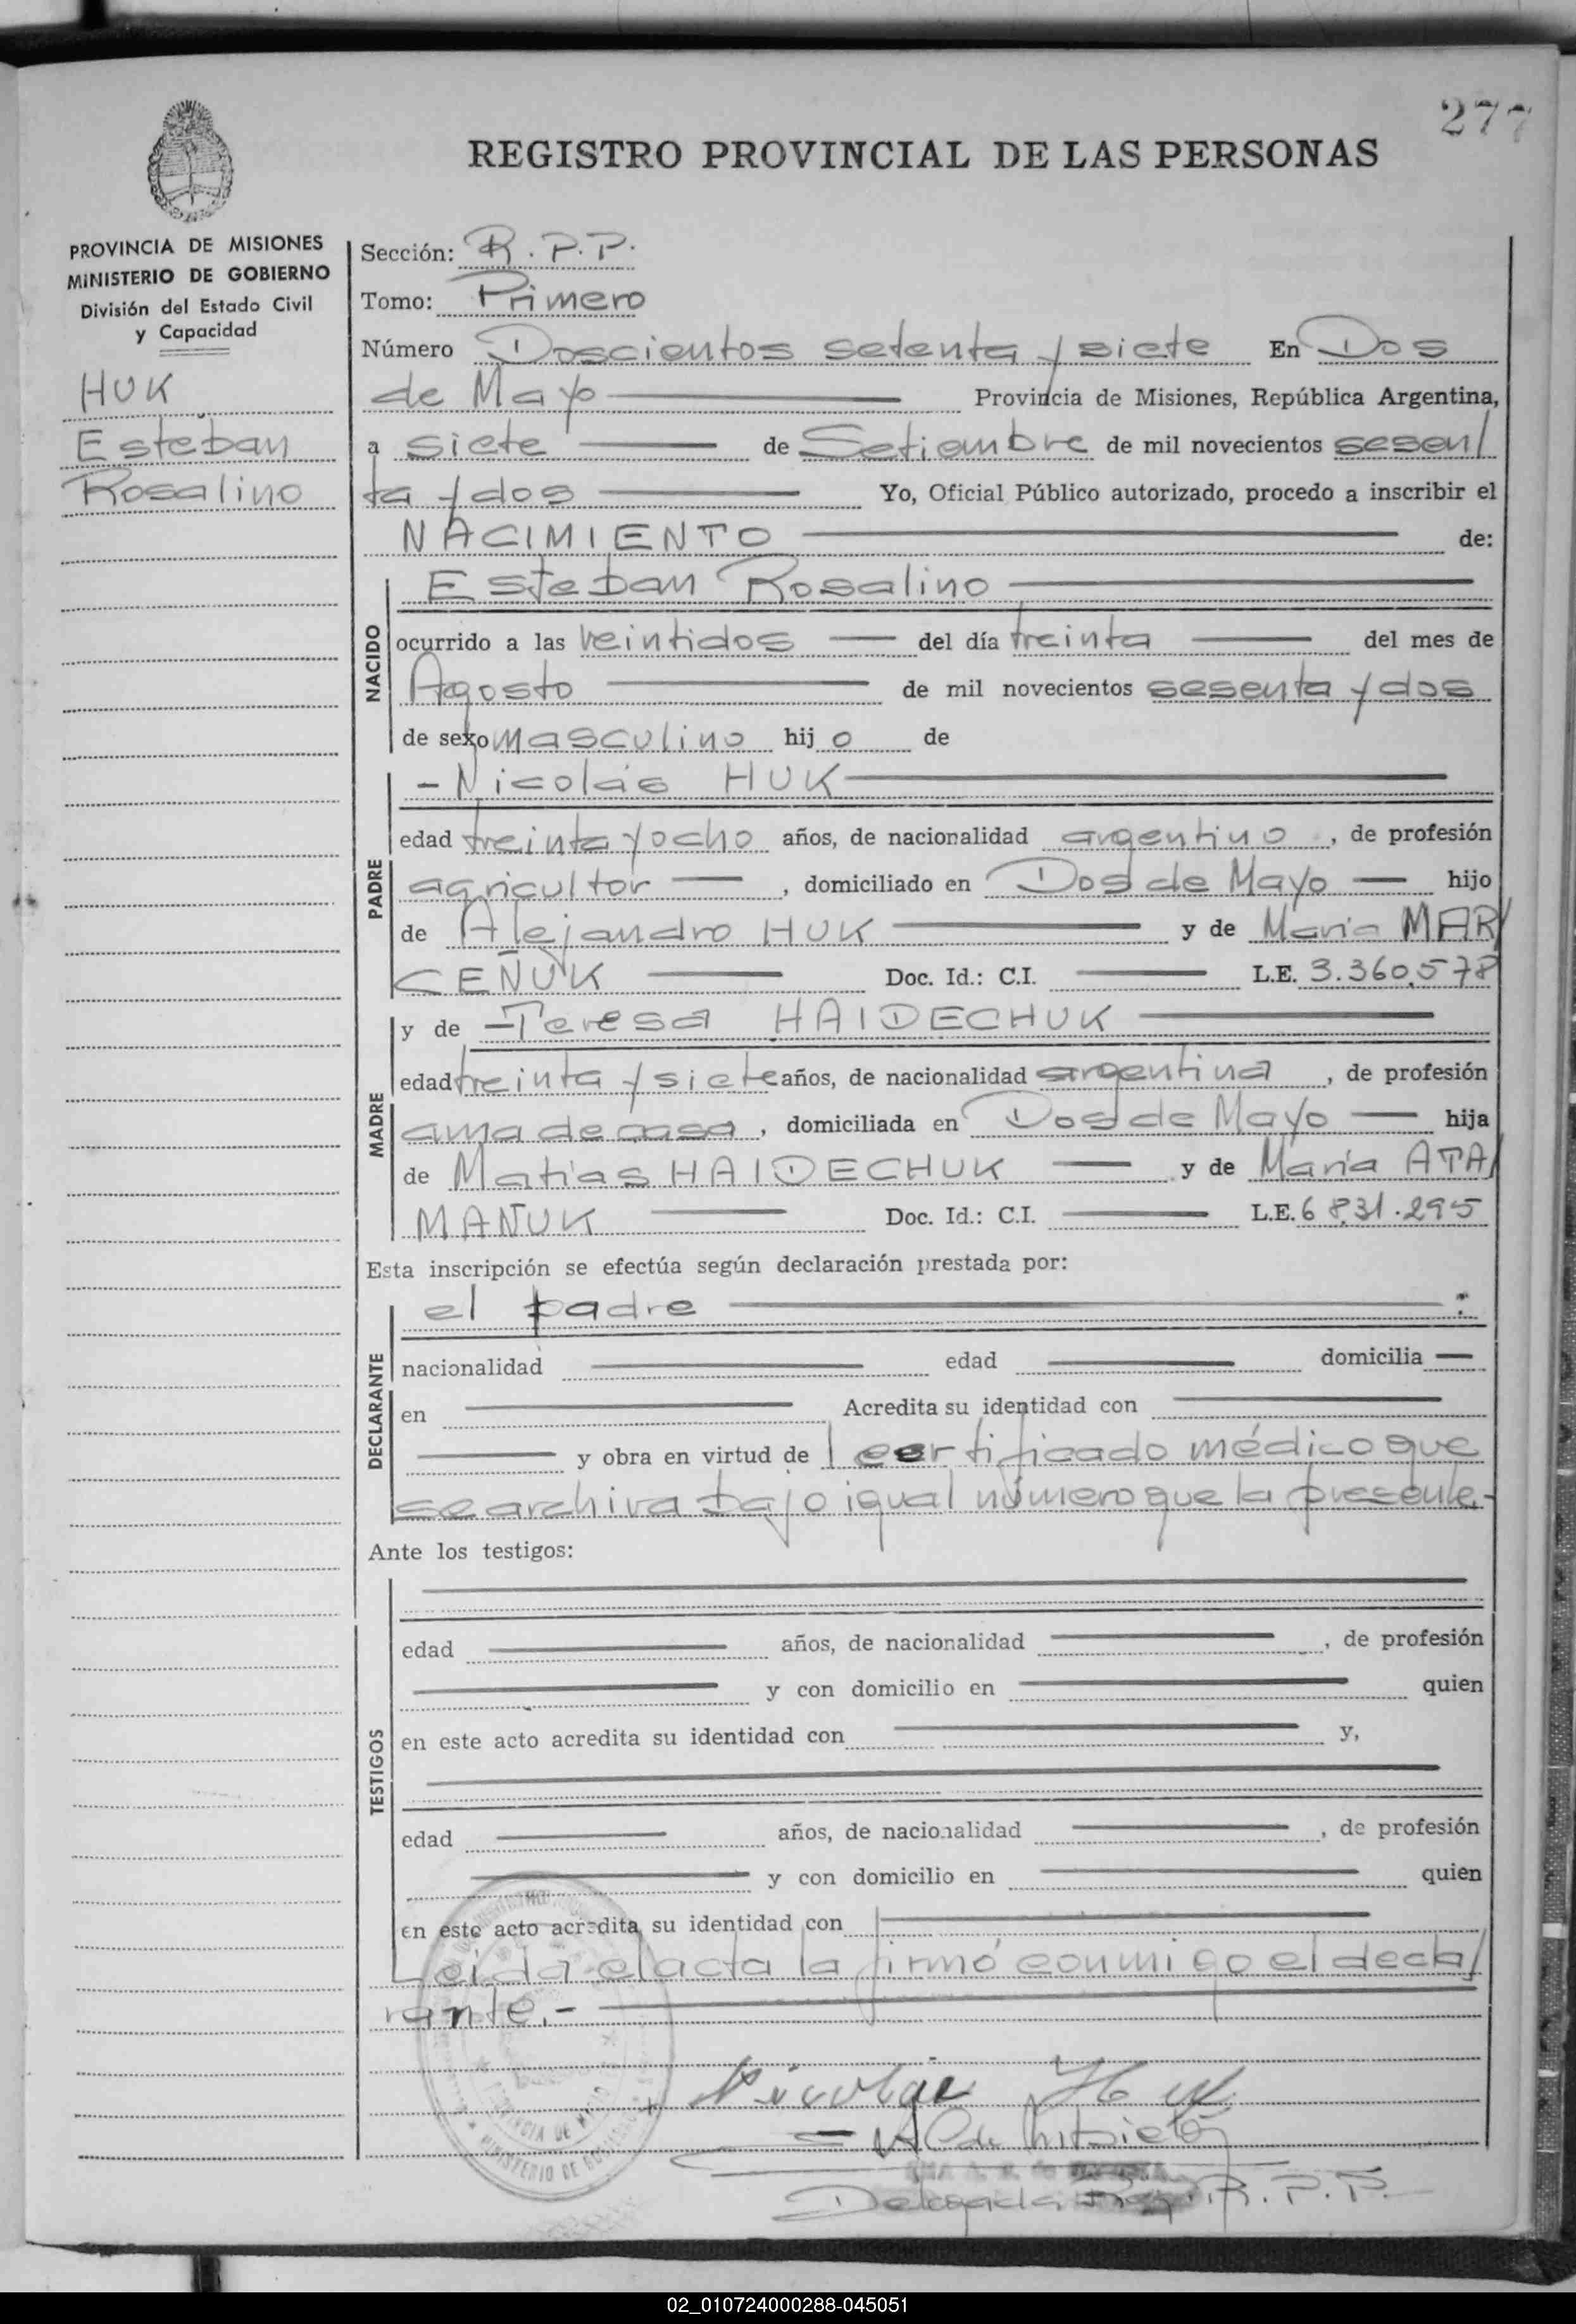 277
REGISTRO PROVINCIAL DE LAS PERSONAS
PROVINCIA DE MISIONES
MINISTERIO DE GOBIERNO
División del Estado Civil
y Capacidad
HUK
Esteban
Rosalino
Sección: R.P.P.
Tomo: Primero
Número Doscientos setenta y siete En Dos
de Mayo Provincia de Misiones, República Argentina,
a siete de Setiembre de mil novecientos sesen/
ta y dos Yo, Oficial Público autorizado, procedo a inscribir el
NACIMIENTO de:
NACIDO
Esteban Rosalino
ocurrido a las veintidos del día treinta del mes de
Agosto de mil novecientos sesenta y dos
de sexo masculino hijo de
PADRE
-Nicolás HUK
edad treinta y ocho años, de nacionalidad argentino, de profesión
agricultor, domiciliado en Dos de Mayo hijo
de Alejandro HUK y de María MAR/
CEÑUK Doc. Id.: C.I. L.E. 3.360.578
MADRE
y de -Teresa HAIDECHUK
edad treinta y siete años, de nacionalidad argentina, de profesión
ama de casa, domiciliada en Dos de Mayo hija
de Matias HAIDECHUK y de María ATA/
MAÑUK Doc. Id.: C.I. L.E. 6831.295
Esta inscripción se efectúa según declaración prestada por:
DECLARANTE
el padre
nacionalidad edad domicilia
en Acredita su identidad con
y obra en virtud de 1 certificado médico que
se archiva bajo igual número que la presente.-
Ante los testigos:
TESTIGOS
edad años, de nacionalidad, de profesión
y con domicilio en quien
en este acto acredita su identidad con y,
edad años, de nacionalidad, de profesión
y con domicilio en quien
en este acto acredita su identidad con
Leída el acta la firmó conmigo el decla/
rante.-
Nicolas Huk
Delegada R.P.P.
MINISTERIO DE
02_010724000288-045051